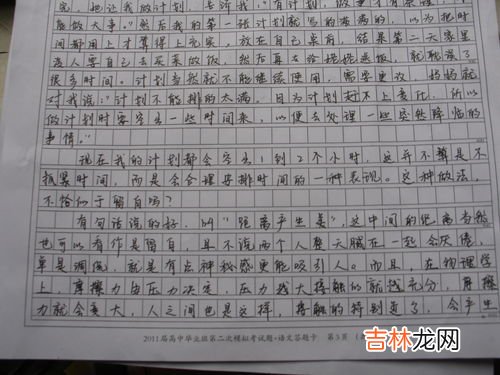 能做大事。”然后我的第一张计划就写的满满的，以为把时
间都用上才算得上充实，放在自己桌前，结果第二天家里
没人要自己去买菜做饭，然后再去给姥姥送饭，就耽误了
很多时间。计划当然就不能继续使用，需要更改，妈妈就
对我说：“计划不能排的太满，因为计划赶不上变化，所以
做计划时要空出一些时间来，以便去处理一些突然降临的
事情。”
现在我的计划都会空出1到2个小时，这并不算是不
抓紧时间，而是会合理安排时间的一种表现。这种做法，
不恰似于留白吗？
有句话说的好，叫“距离产生美”，这中间的距离当然
也可以看作是留白，且不说两个人整天腻在一起会厌倦，
单是调侃，就是有点神秘感更能吸引人。而且，在物理学
上，摩擦力由压力决定，压力越大接触的就越充分，摩擦
力就会变大，人之间也是这样，接触的特别近了，会产生
2011届高中毕业班第二次模拟考试题·语文答题卡 第3页
吉林龙网